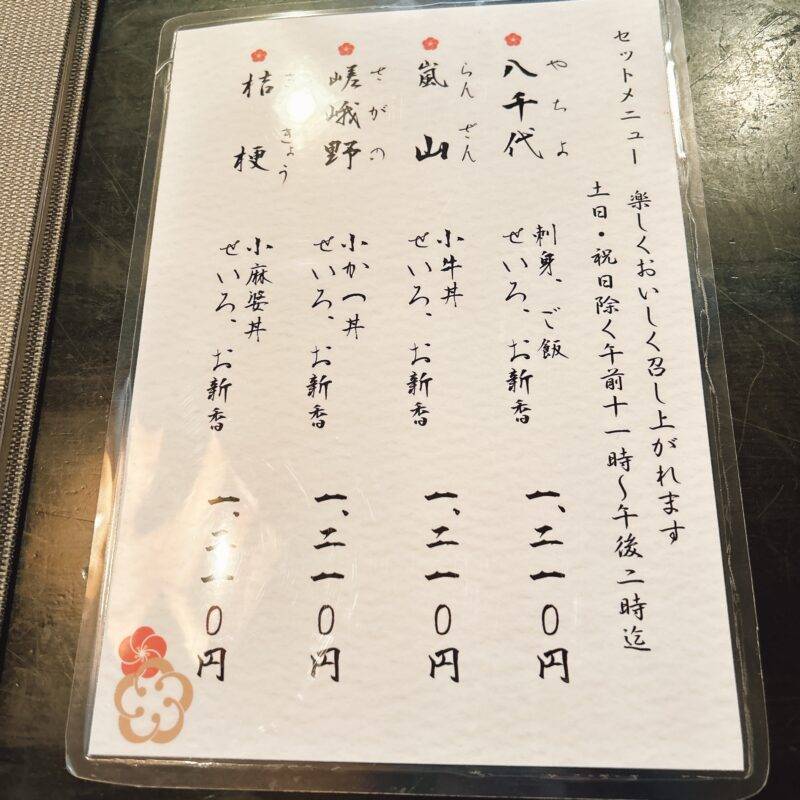 セットメニュー 楽しくおいしく召し上がれます
土日・祝日除く午前十一時〜午後二時迄
やちよ
八千代
刺身、ご飯
せいろ、お新香
一、二一〇円
らんざん
嵐山
小牛丼
せいろ、お新香
一、二一〇円
さがの
嵯峨野
小かつ丼
せいろ、お新香
一、二一〇円
ききょう
桔梗
小麻婆丼
せいろ、お新香
一、二一〇円